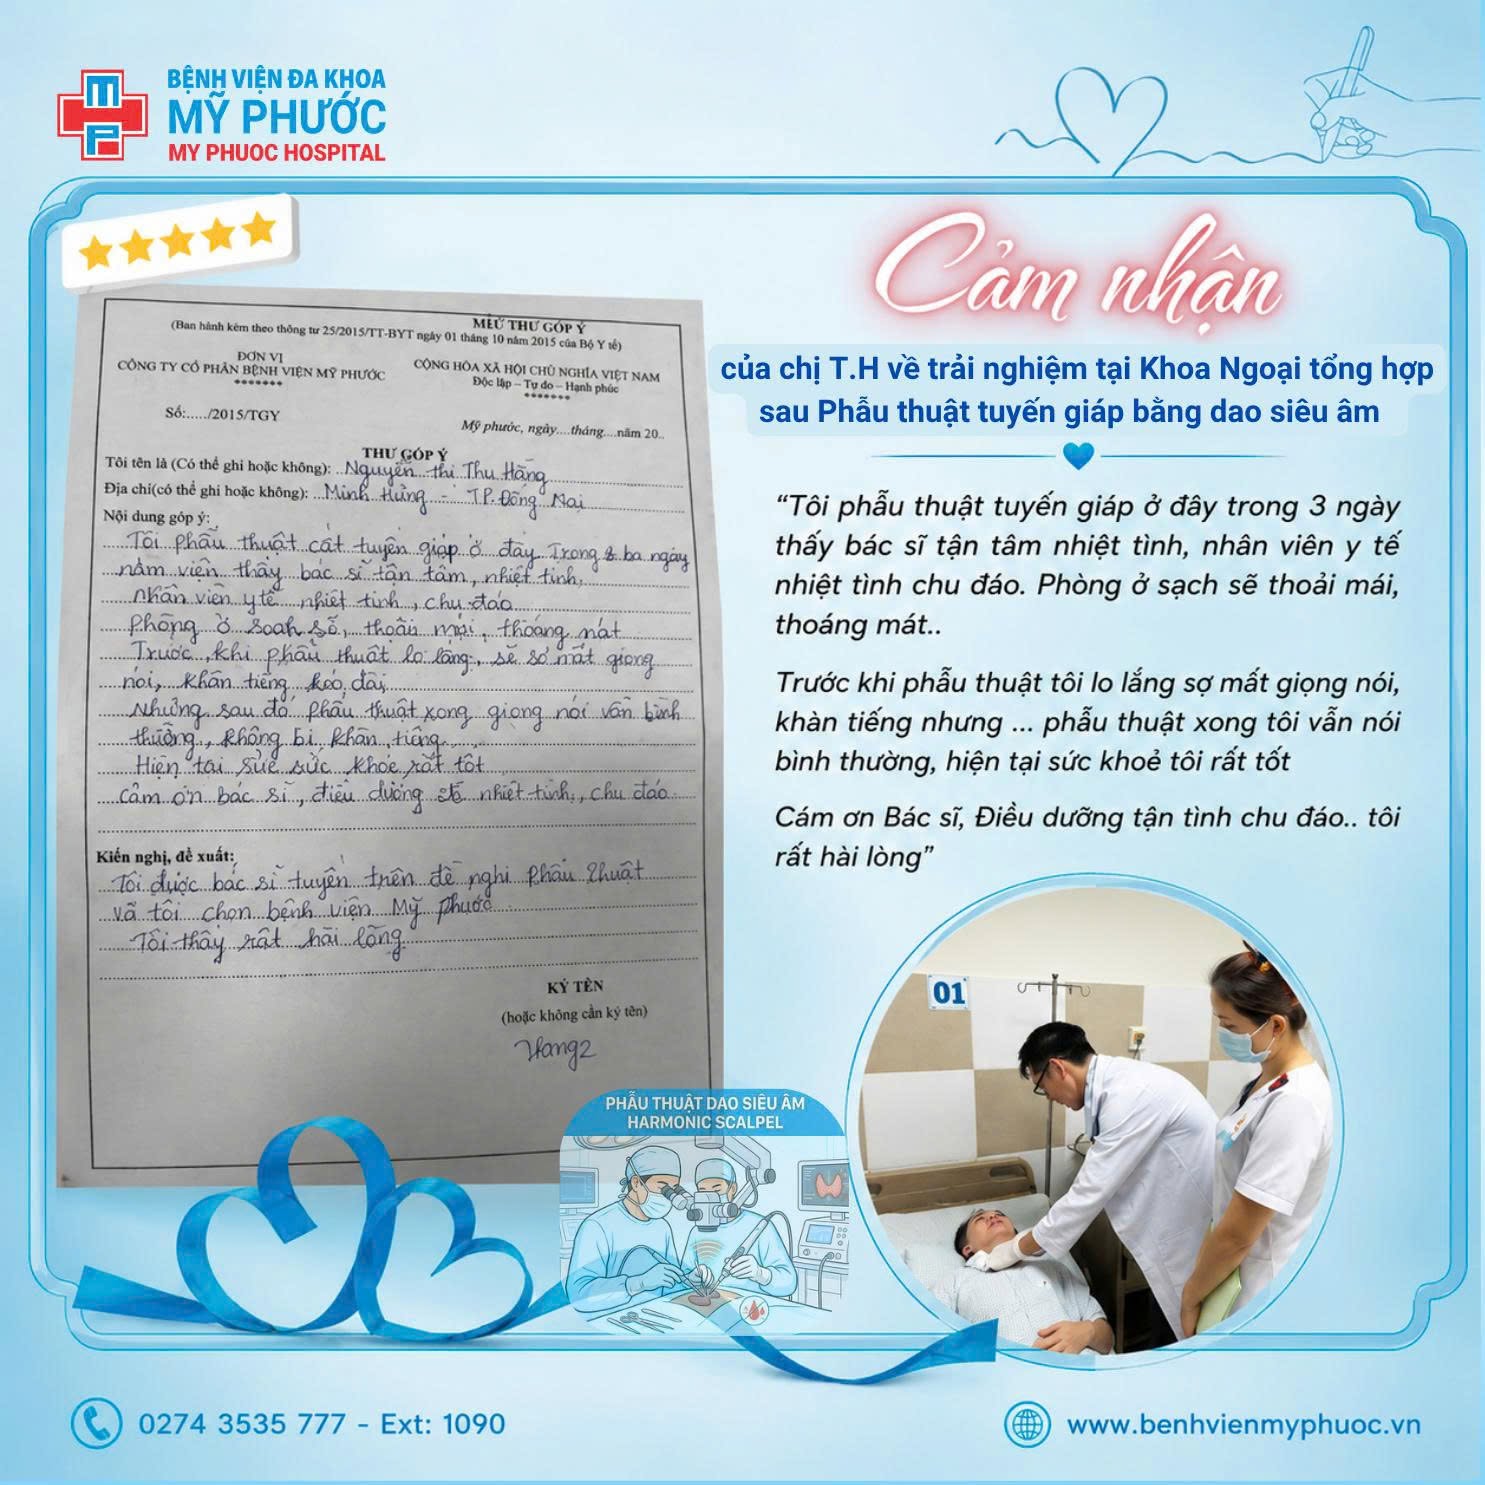 BỆNH VIỆN ĐA KHOA
MỸ PHƯỚC
MY PHUOC HOSPITAL
Cảm nhận
của chị T.H về trải nghiệm tại Khoa Ngoại tổng hợp
sau Phẫu thuật tuyến giáp bằng dao siêu âm
"Tôi phẫu thuật tuyến giáp ở đây trong 3 ngày
thấy bác sĩ tận tâm nhiệt tình, nhân viên y tế
nhiệt tình chu đáo. Phòng ở sạch sẽ thoải mái,
thoáng mát..
Trước khi phẫu thuật tôi lo lắng sợ mất giọng nói,
khàn tiếng nhưng ... phẫu thuật xong tôi vẫn nói
bình thường, hiện tại sức khoẻ tôi rất tốt
Cám ơn Bác sĩ, Điều dưỡng tận tình chu đáo.. tôi
rất hài lòng"
THƯ GÓP Ý
(Ban hành kèm theo thông tư 25/2015/TT-BYT ngày 01 tháng 10 năm 2015 của Bộ Y tế)
ĐƠN VỊ
CÔNG TY CỔ PHẦN BỆNH VIỆN MỸ PHƯỚC
CỘNG HÒA XÃ HỘI CHỦ NGHĨA VIỆT NAM
Độc lập – Tự do – Hạnh phúc
Số:...../2015/TGY
Mỹ phước, ngày....tháng....năm 20..
THƯ GÓP Ý
Tôi tên là (Có thể ghi hoặc không): Nguyễn thị Thu Hằng
Địa chỉ(có thể ghi hoặc không): Minh Hưng - TP. Đồng Nai
Nội dung góp ý:
Tôi phẫu thuật cắt tuyến giáp ở đây Trong ba ngày
nằm viện thấy bác sĩ tận tâm, nhiệt tình,
nhân viên y tế nhiệt tình, chu đáo
Phòng ở, thoải mái, thoáng mát
Trước khi phẫu thuật lo lắng, sẽ sợ mất giọng
nói, khàn tiếng kéo dài
Nhưng sau đó phẫu thuật xong giọng nói vẫn bình
thường, không bị khàn tiếng
Hiện tại sức khỏe rất tốt
cảm ơn bác sĩ, điều dưỡng nhiệt tình, chu đáo
Kiến nghị, đề xuất:
Tôi được bác sĩ tuyến trên đề nghị phẫu thuật
và tôi chọn bệnh viện Mỹ phước
Tôi thấy rất hài lòng
KÝ TÊN
(hoặc không cần ký tên)
PHẪU THUẬT DAO SIÊU ÂM
HARMONIC SCALPEL
01
0274 3535 777 - Ext: 1090
www.benhvienmyphuoc.vn